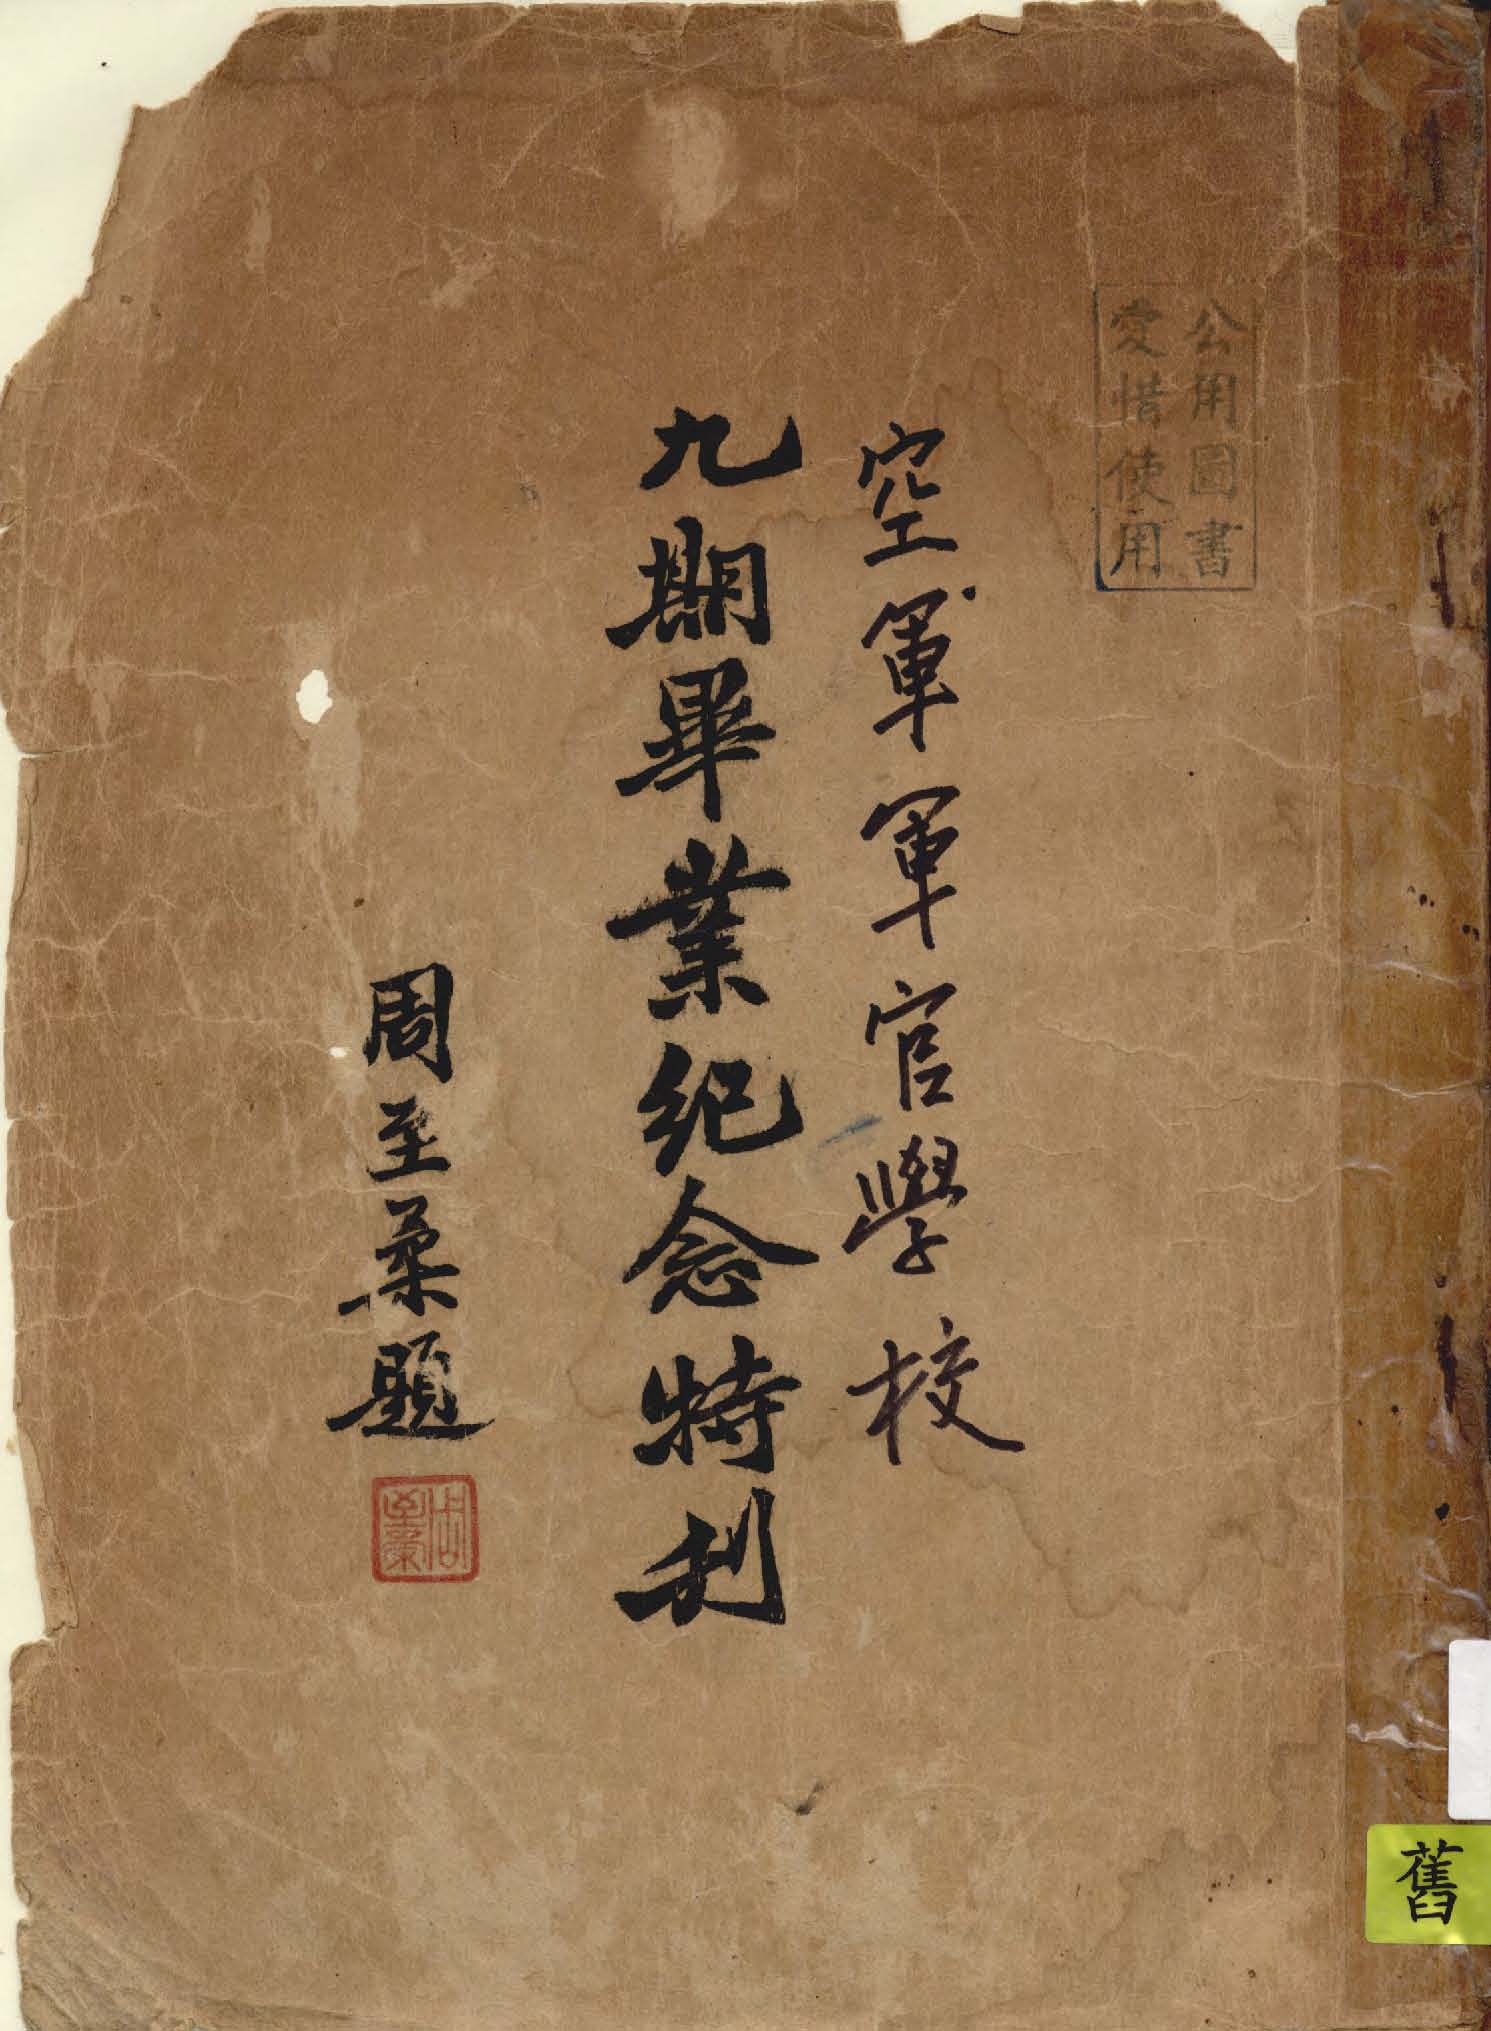 公用圖書
愛惜使用
空軍軍官學校
九期畢業紀念特刊
周至柔題
周至柔
舊